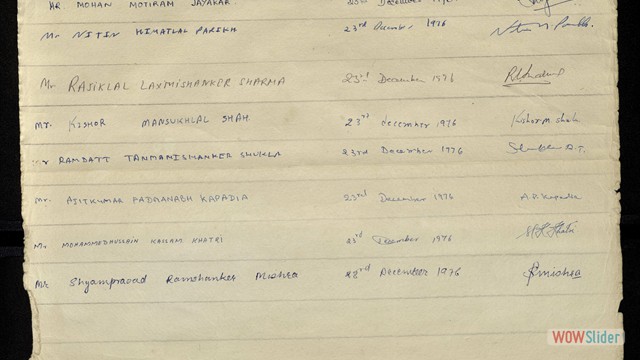 MR MOHAN MOTIRAM JAYAKAR 23rd December 1976
Mr NITIN HIMATLAL PARIKH 23rd December 1976
Mr. RASIKLAL LAXMISHANKER SHARMA 23rd December 1976
MR. KISHOR MANSUKHLAL SHAH 23rd december 1976 Kishor M Shah
RAMDATT TANMANISHANKER SHUKLA 23rd December 1976
Mr. AJITKUMAR PADMANABH KAPADIA 23rd December 1976 A P. Kapadia
Mr MOHAMMEDHUSSAIN KALLAM KHATRI 23rd December 1976
Mr Shyamprasad Ramshanker Mishra 23rd December 1976 Rmishra
WOWSlider